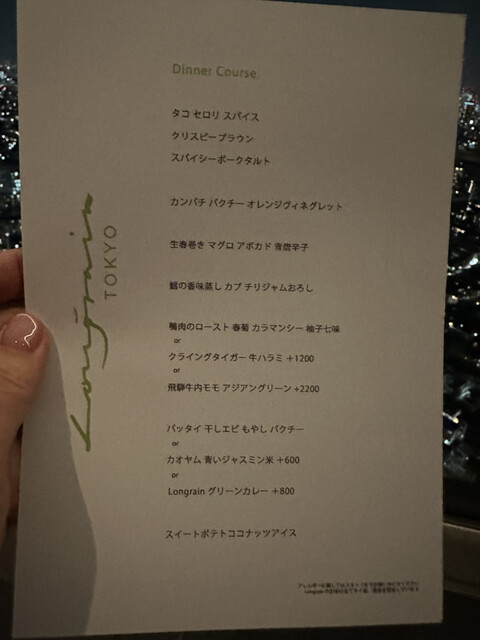 Dinner Course
タコ セロリ スパイス
クリスピープラウン
スパイシーポークタルト
カンパチ パクチー オレンジヴィネグレット
生春巻き マグロ アボカド 青唐辛子
鱈の香味蒸し カブ チリジャムおろし
鴨肉のロースト 春菊 カラマンシー 柚子七味
or
クライングタイガー 牛ハラミ +1200
or
飛騨牛内モモ アジアングリーン +2200
パッタイ 干しエビ もやし パクチー
or
カオヤム 青いジャスミン米 +600
or
Longrain グリーンカレー +800
スイートポテトココナッツアイス
Longrain
TOKYO